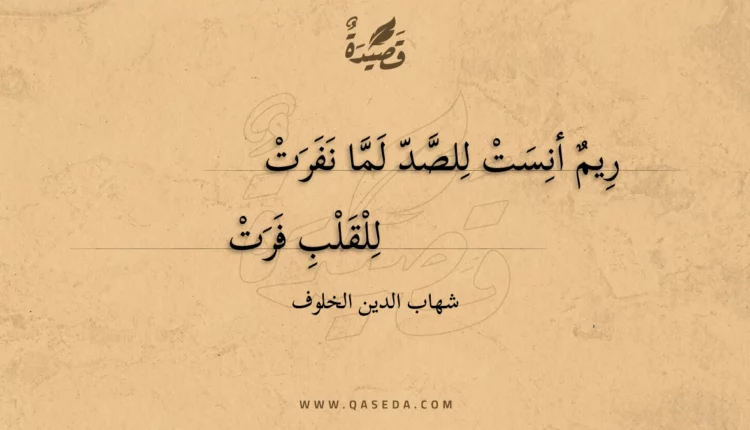 قَصِيدَةٌ
رِيمٌ أنِسَتْ لِلصَّدّ لَمَّا نَفَرَتْ
لِلْقَلْبِ فَرَتْ
شهاب الدين الخلوف
WWW.QASEDA.COM